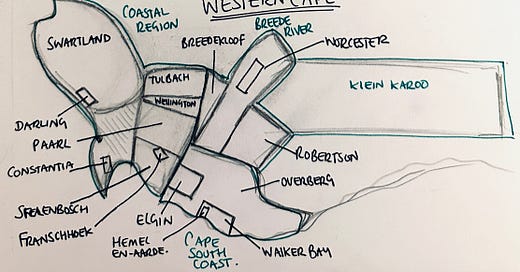 WESTERN CAPE
COASTAL
REGION
BREEDE
RIVER
SWARTLAND
BREEDEKLOOF
WORCESTER
TULBACH
KLEIN KAROO
WELLINGTON
DARLING
PAARL
CONSTANTIA
ROBERTSON
OVERBERG
STELENBOSCH
FRANSCHHOEK
ELGIN
HEMEL
EN-AARDE.
CAPE
SOUTH
COAST.
WALKER BAY